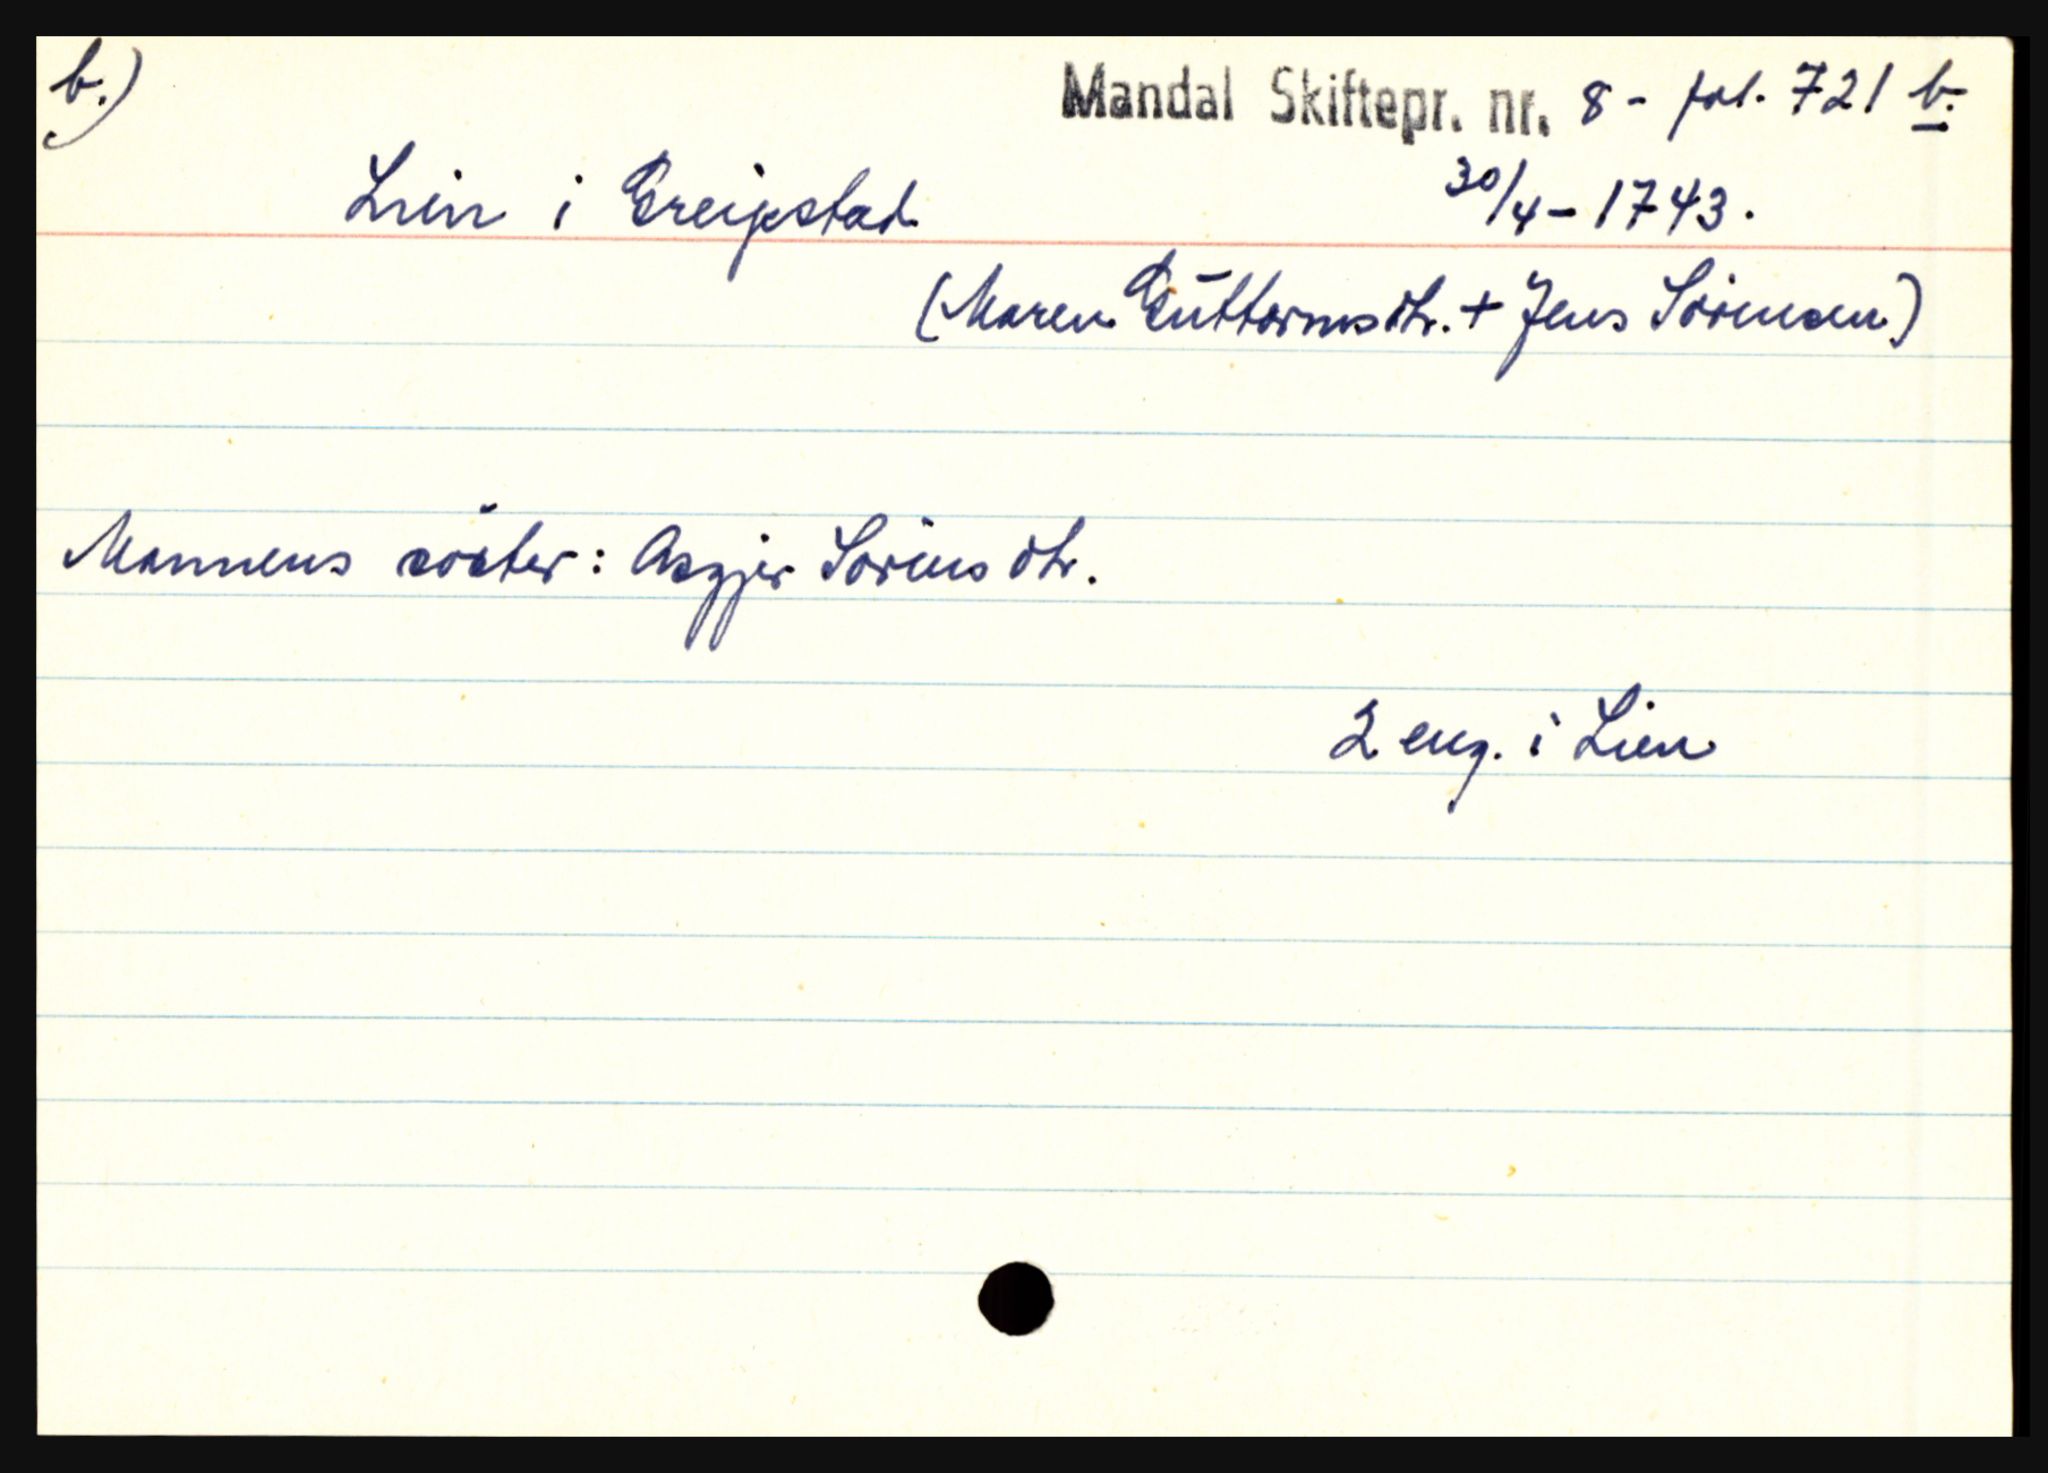 b.)
Mandal Skiftepr. nr. 8 - fol. 721 b.
Lien i Greipstad
30/4 - 1743.
(Maren Guttormsdtr. + Jens Sörensen)
Mannens söster: Asgjer Sörensdtr.
2 eng. i Lien